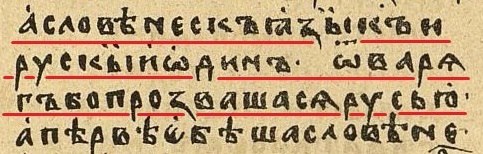 асловѣнескъꙗзꙑкъи
рускꙑиѡдинъ· ѿварѧ
гъбопрозвашасѧрусью·
апѣрвѣѥбѣшасловѣне·